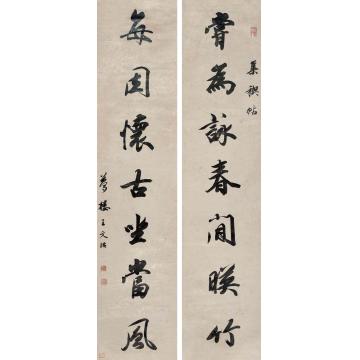 集禊帖
甞為詠春間暎竹
每因懷古坐當風
夢樓王文治